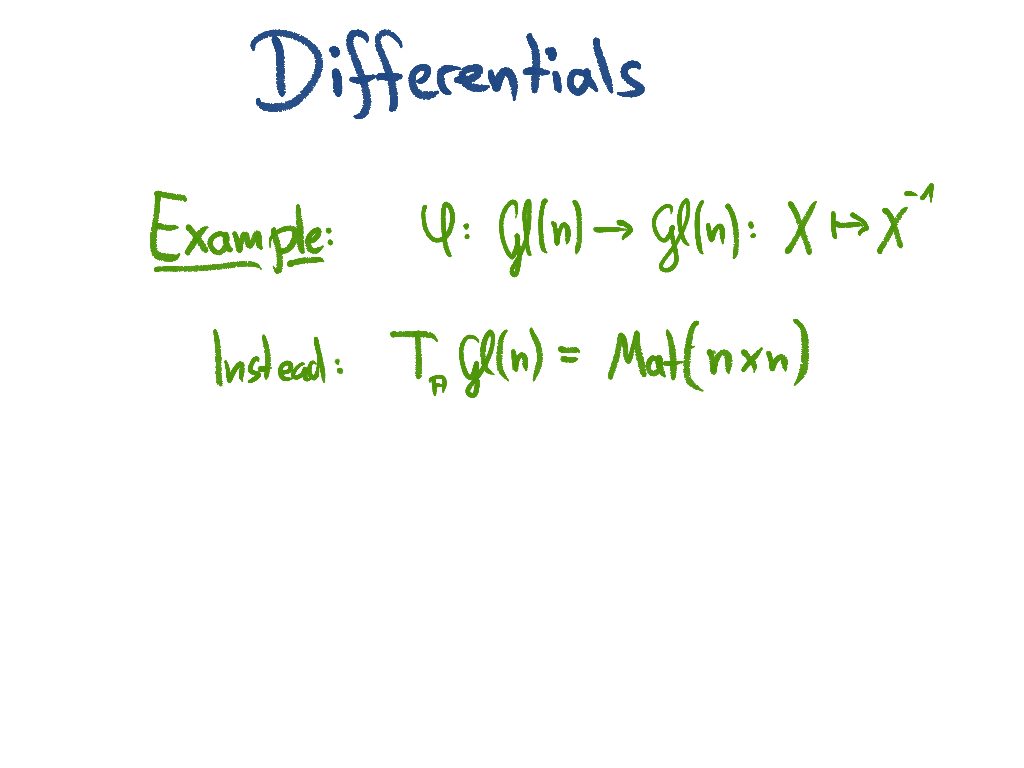 Differentials
Example: φ: Gl(n) → Gl(n): X ↦ X⁻¹
Instead: T_A Gl(n) = Mat(n×n)